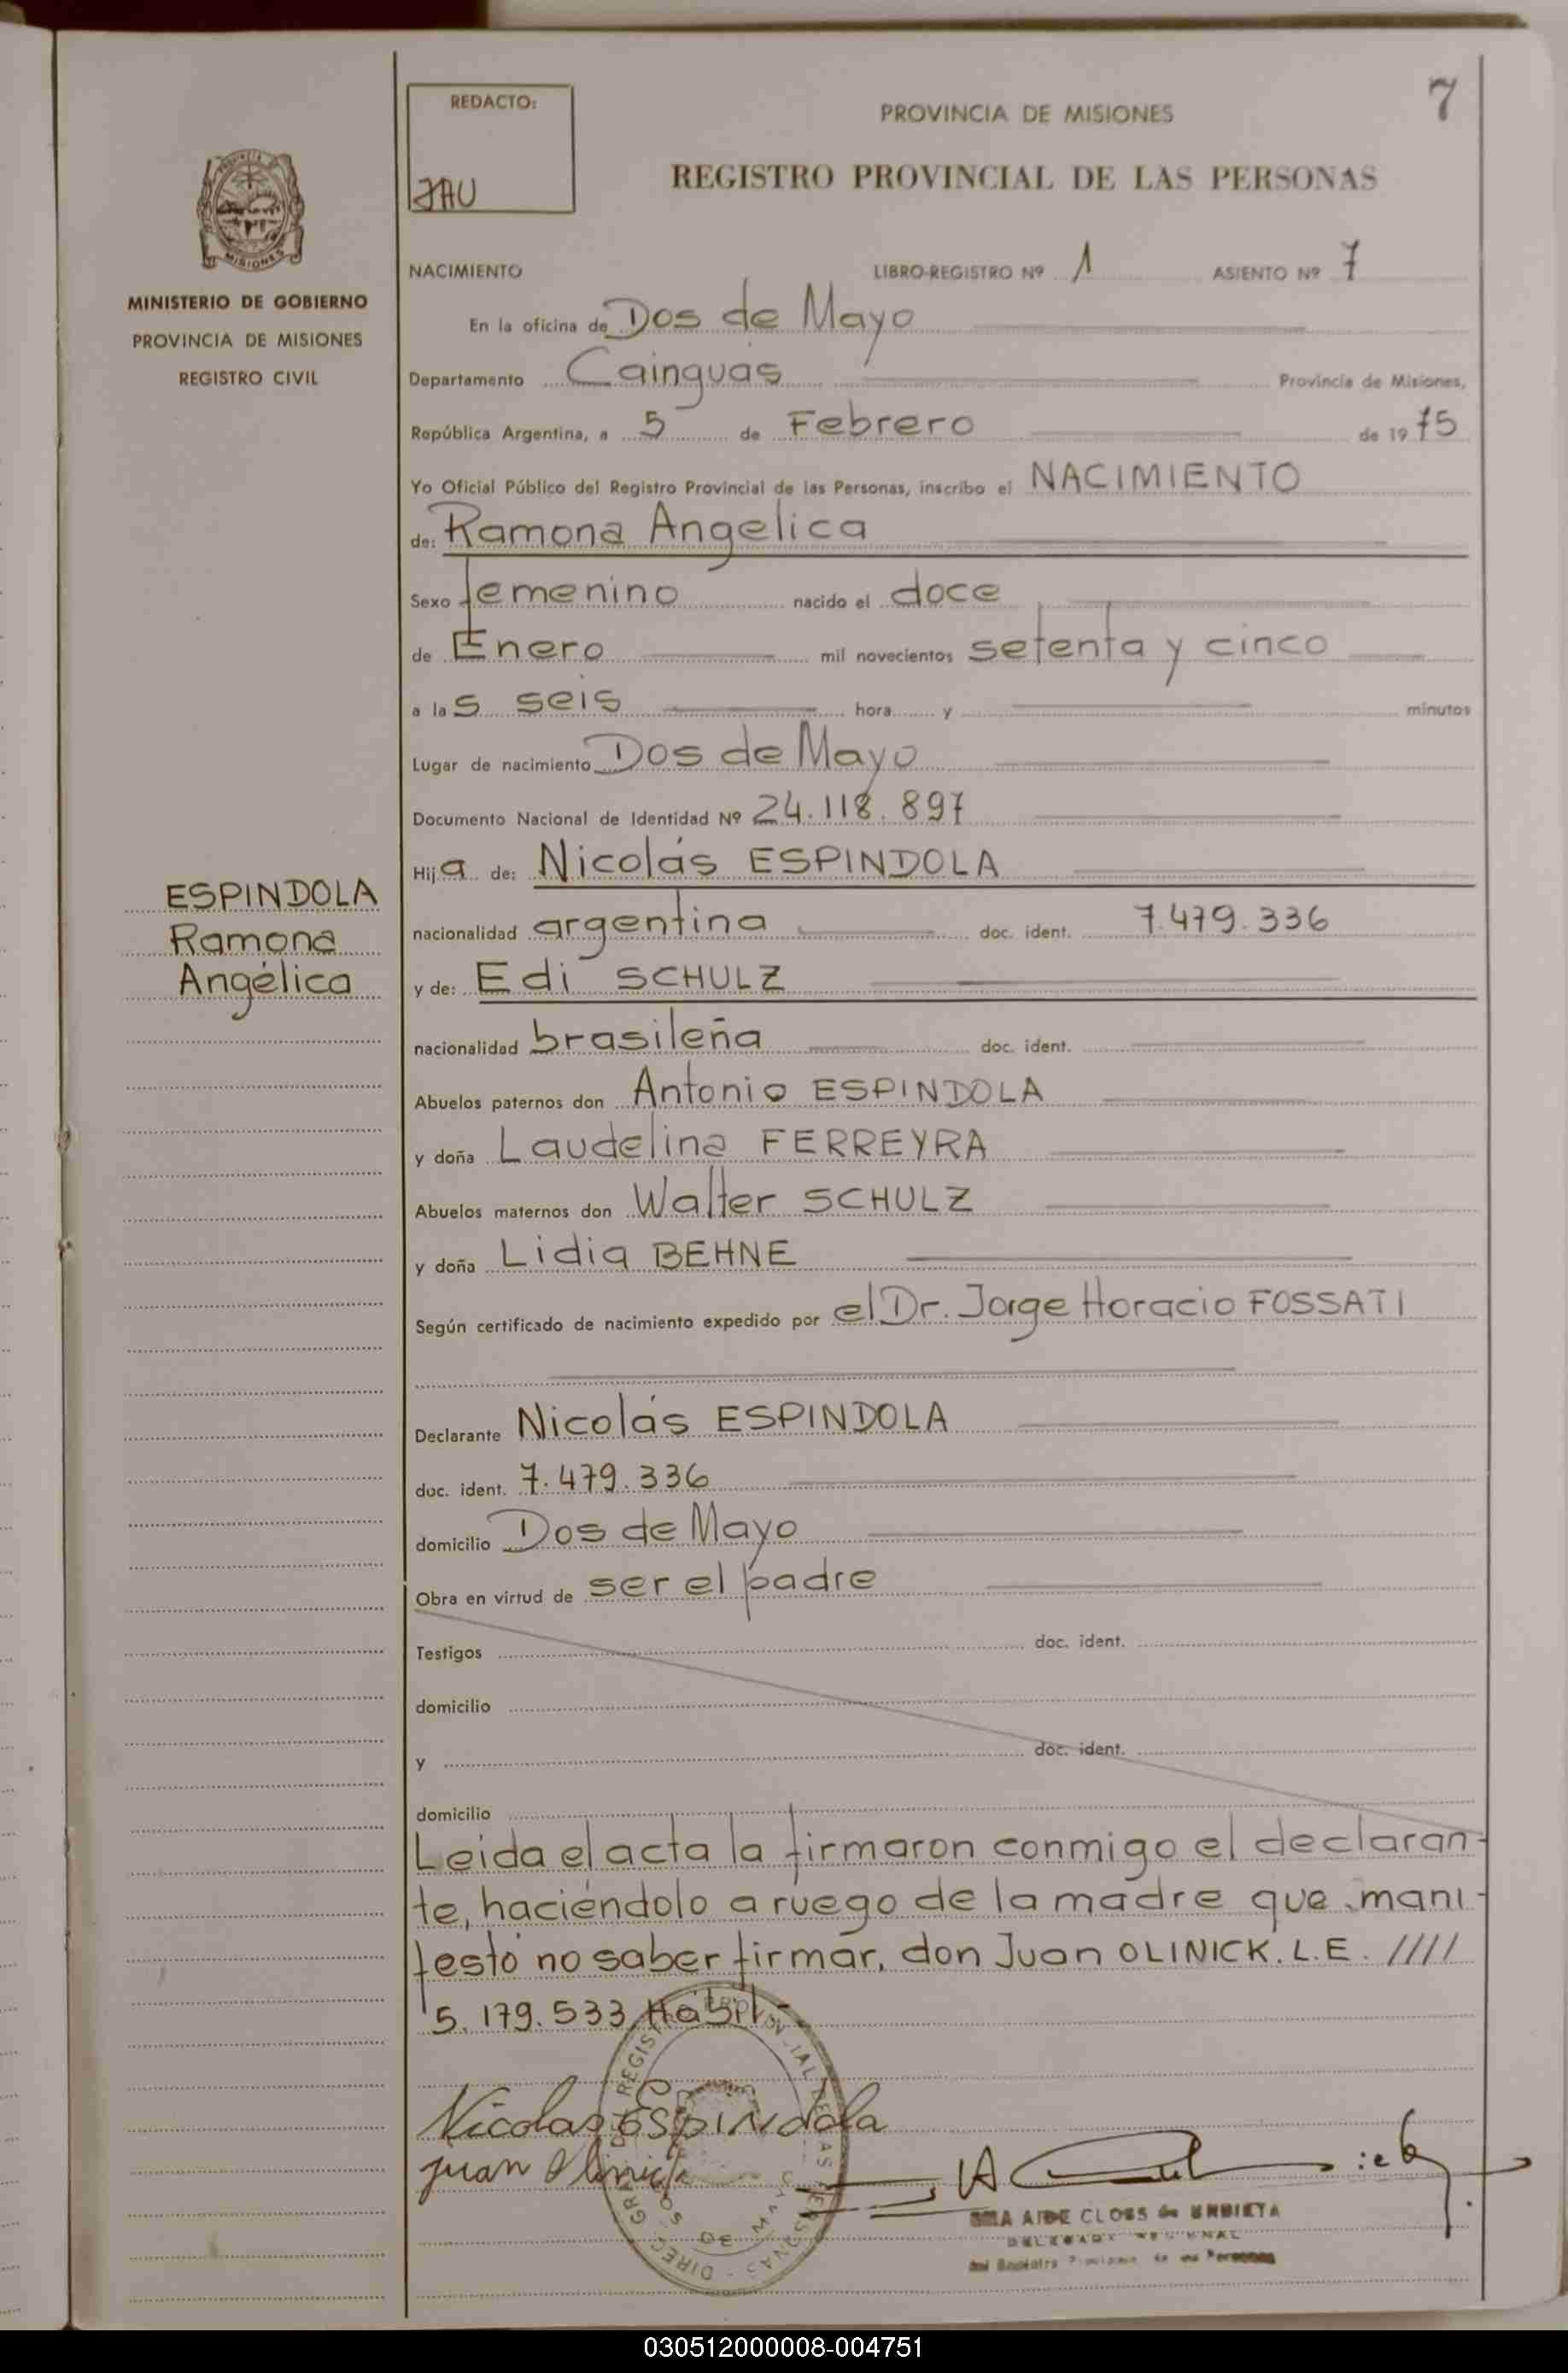 7
REDACTO:
JAU
PROVINCIA DE MISIONES
REGISTRO PROVINCIAL DE LAS PERSONAS
MISIONES
MINISTERIO DE GOBIERNO
PROVINCIA DE MISIONES
REGISTRO CIVIL
ESPINDOLA
Ramona
Angélica
NACIMIENTO LIBRO-REGISTRO Nº 1 ASIENTO Nº 7
En la oficina de Dos de Mayo
Departamento Cainguas Provincia de Misiones,
República Argentina, a 5 de Febrero de 1975
Yo Oficial Público del Registro Provincial de las Personas, inscribo el NACIMIENTO
de: Ramona Angelica
Sexo femenino nacido el doce
de Enero mil novecientos setenta y cinco
a las seis hora y minutos
Lugar de nacimiento Dos de Mayo
Documento Nacional de Identidad Nº 24.118.897
Hija de: Nicolás ESPINDOLA
nacionalidad argentina doc. ident. 7.479.336
y de: Edi SCHULZ
nacionalidad brasileña doc. ident.
Abuelos paternos don Antonio ESPINDOLA
y doña Laudelina FERREYRA
Abuelos maternos don Walter SCHULZ
y doña Lidia BEHNE
Según certificado de nacimiento expedido por el Dr. Jorge Horacio FOSSATI
Declarante Nicolás ESPINDOLA
doc. ident. 7.479.336
domicilio Dos de Mayo
Obra en virtud de ser el padre
Testigos doc. ident.
domicilio
y doc. ident.
domicilio
Leida el acta la firmaron conmigo el declaran-
te, haciéndolo a ruego de la madre que mani-
festó no saber firmar, don Juan OLINICK. L.E. ////
5.179.533, Hábil.-
Nicolas Espindola
Juan Olinick
AIDE CLOSS de
030512000008-004751